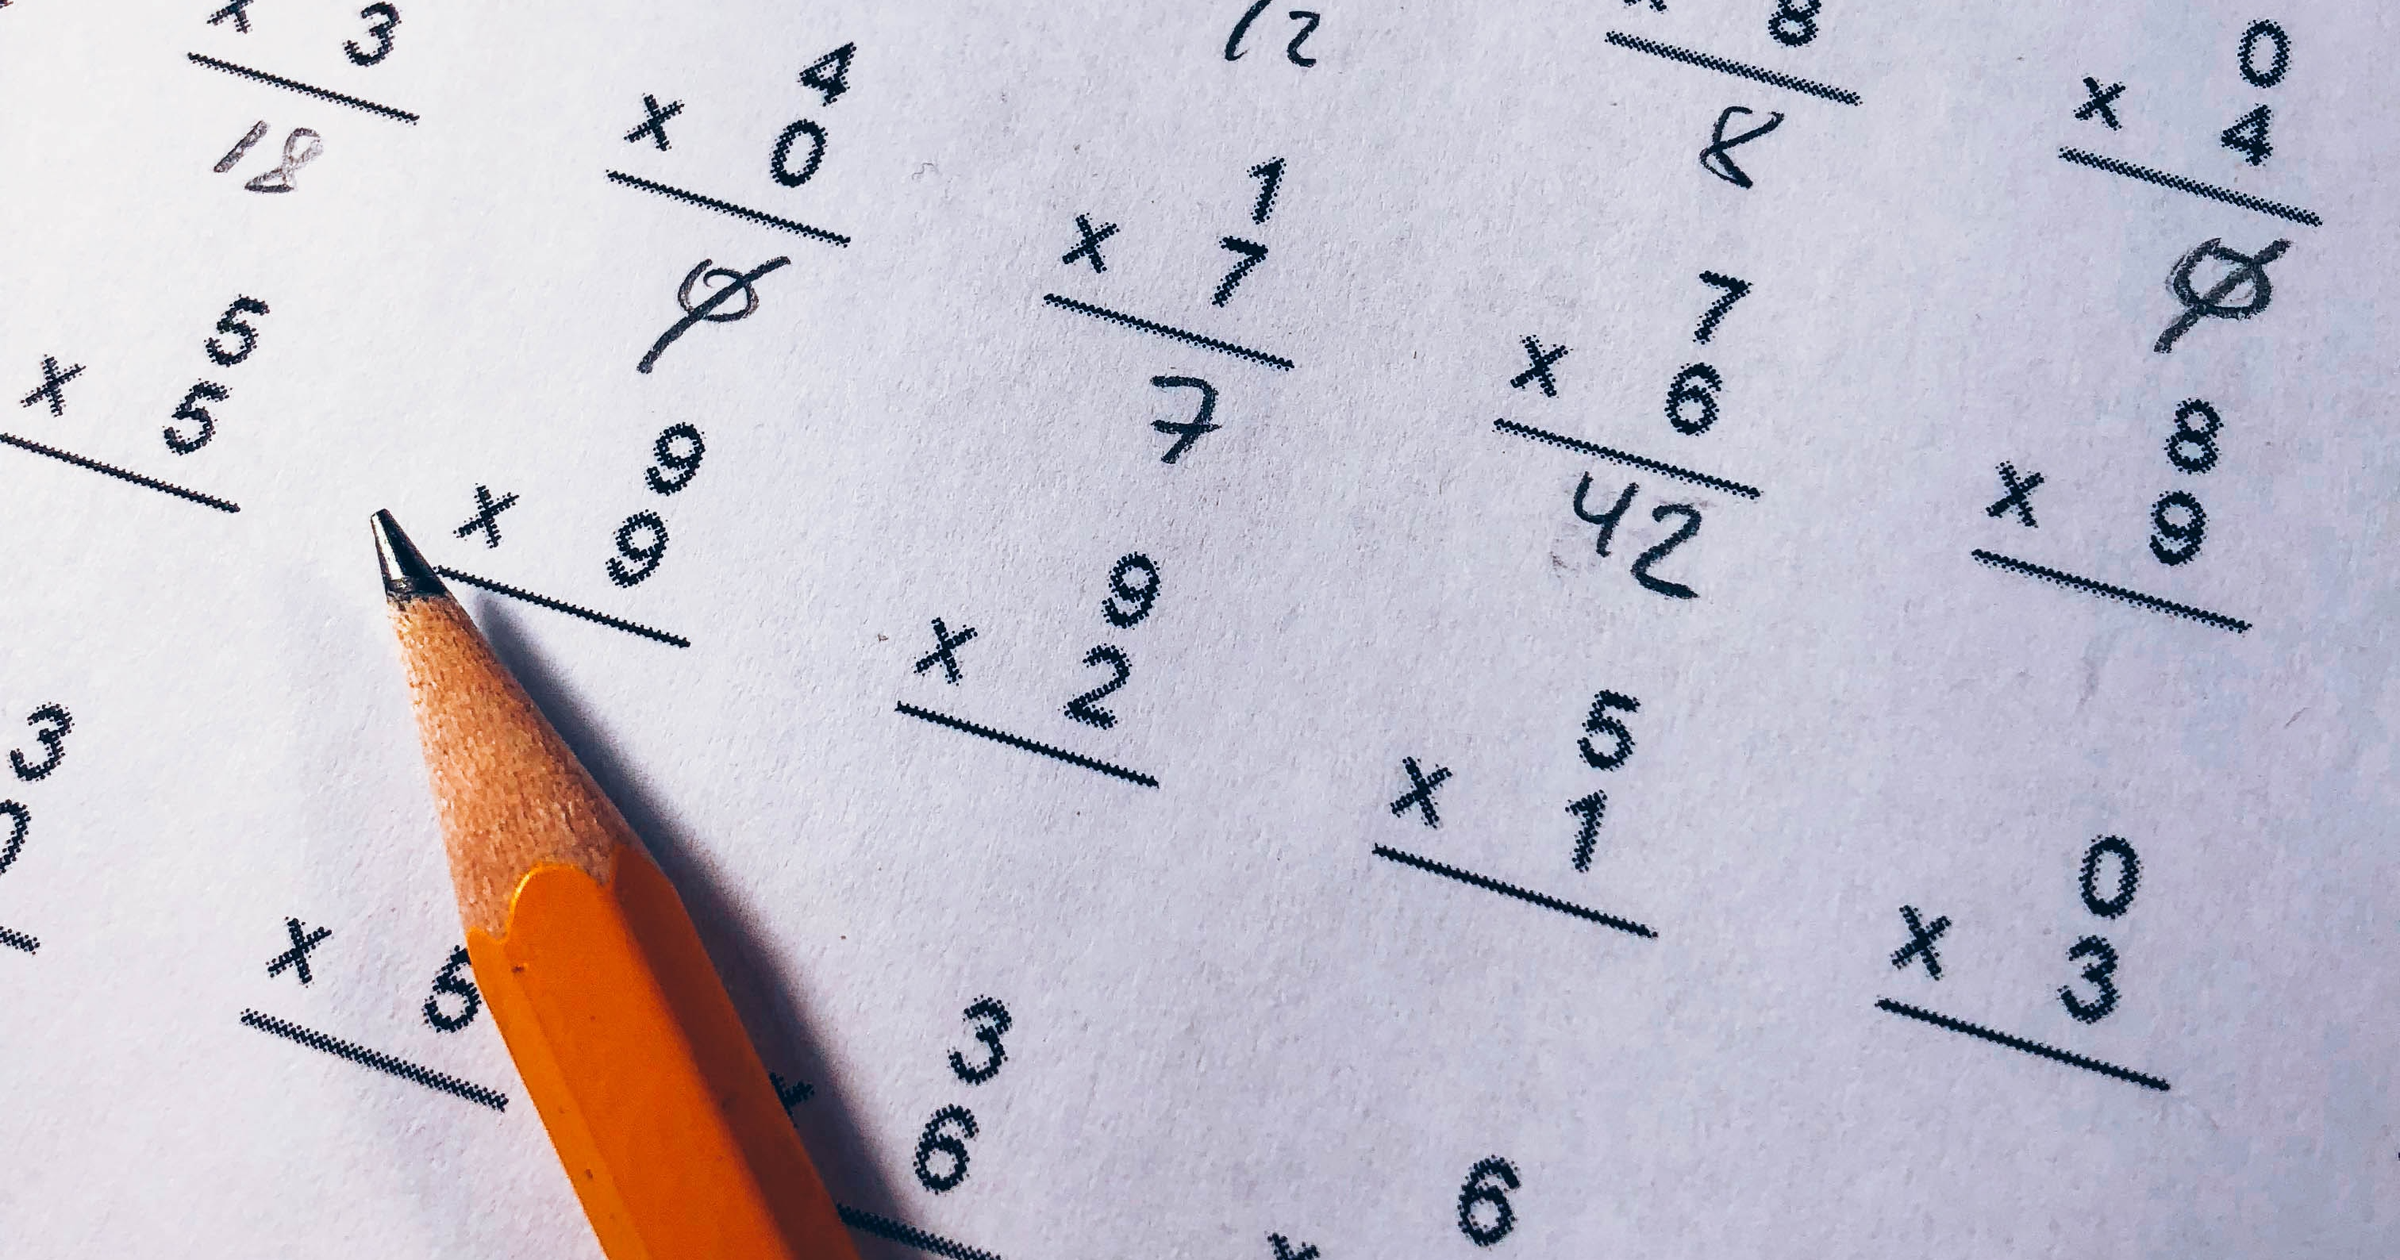 x 3
18
4
x 0
0
12
1
x 7
7
x 8
8
7
x 6
42
0
x 4
0
5
x 5
9
x 9
9
x 2
5
x 1
8
x 9
3
0
x
3
x 6
6
x
0
x 3